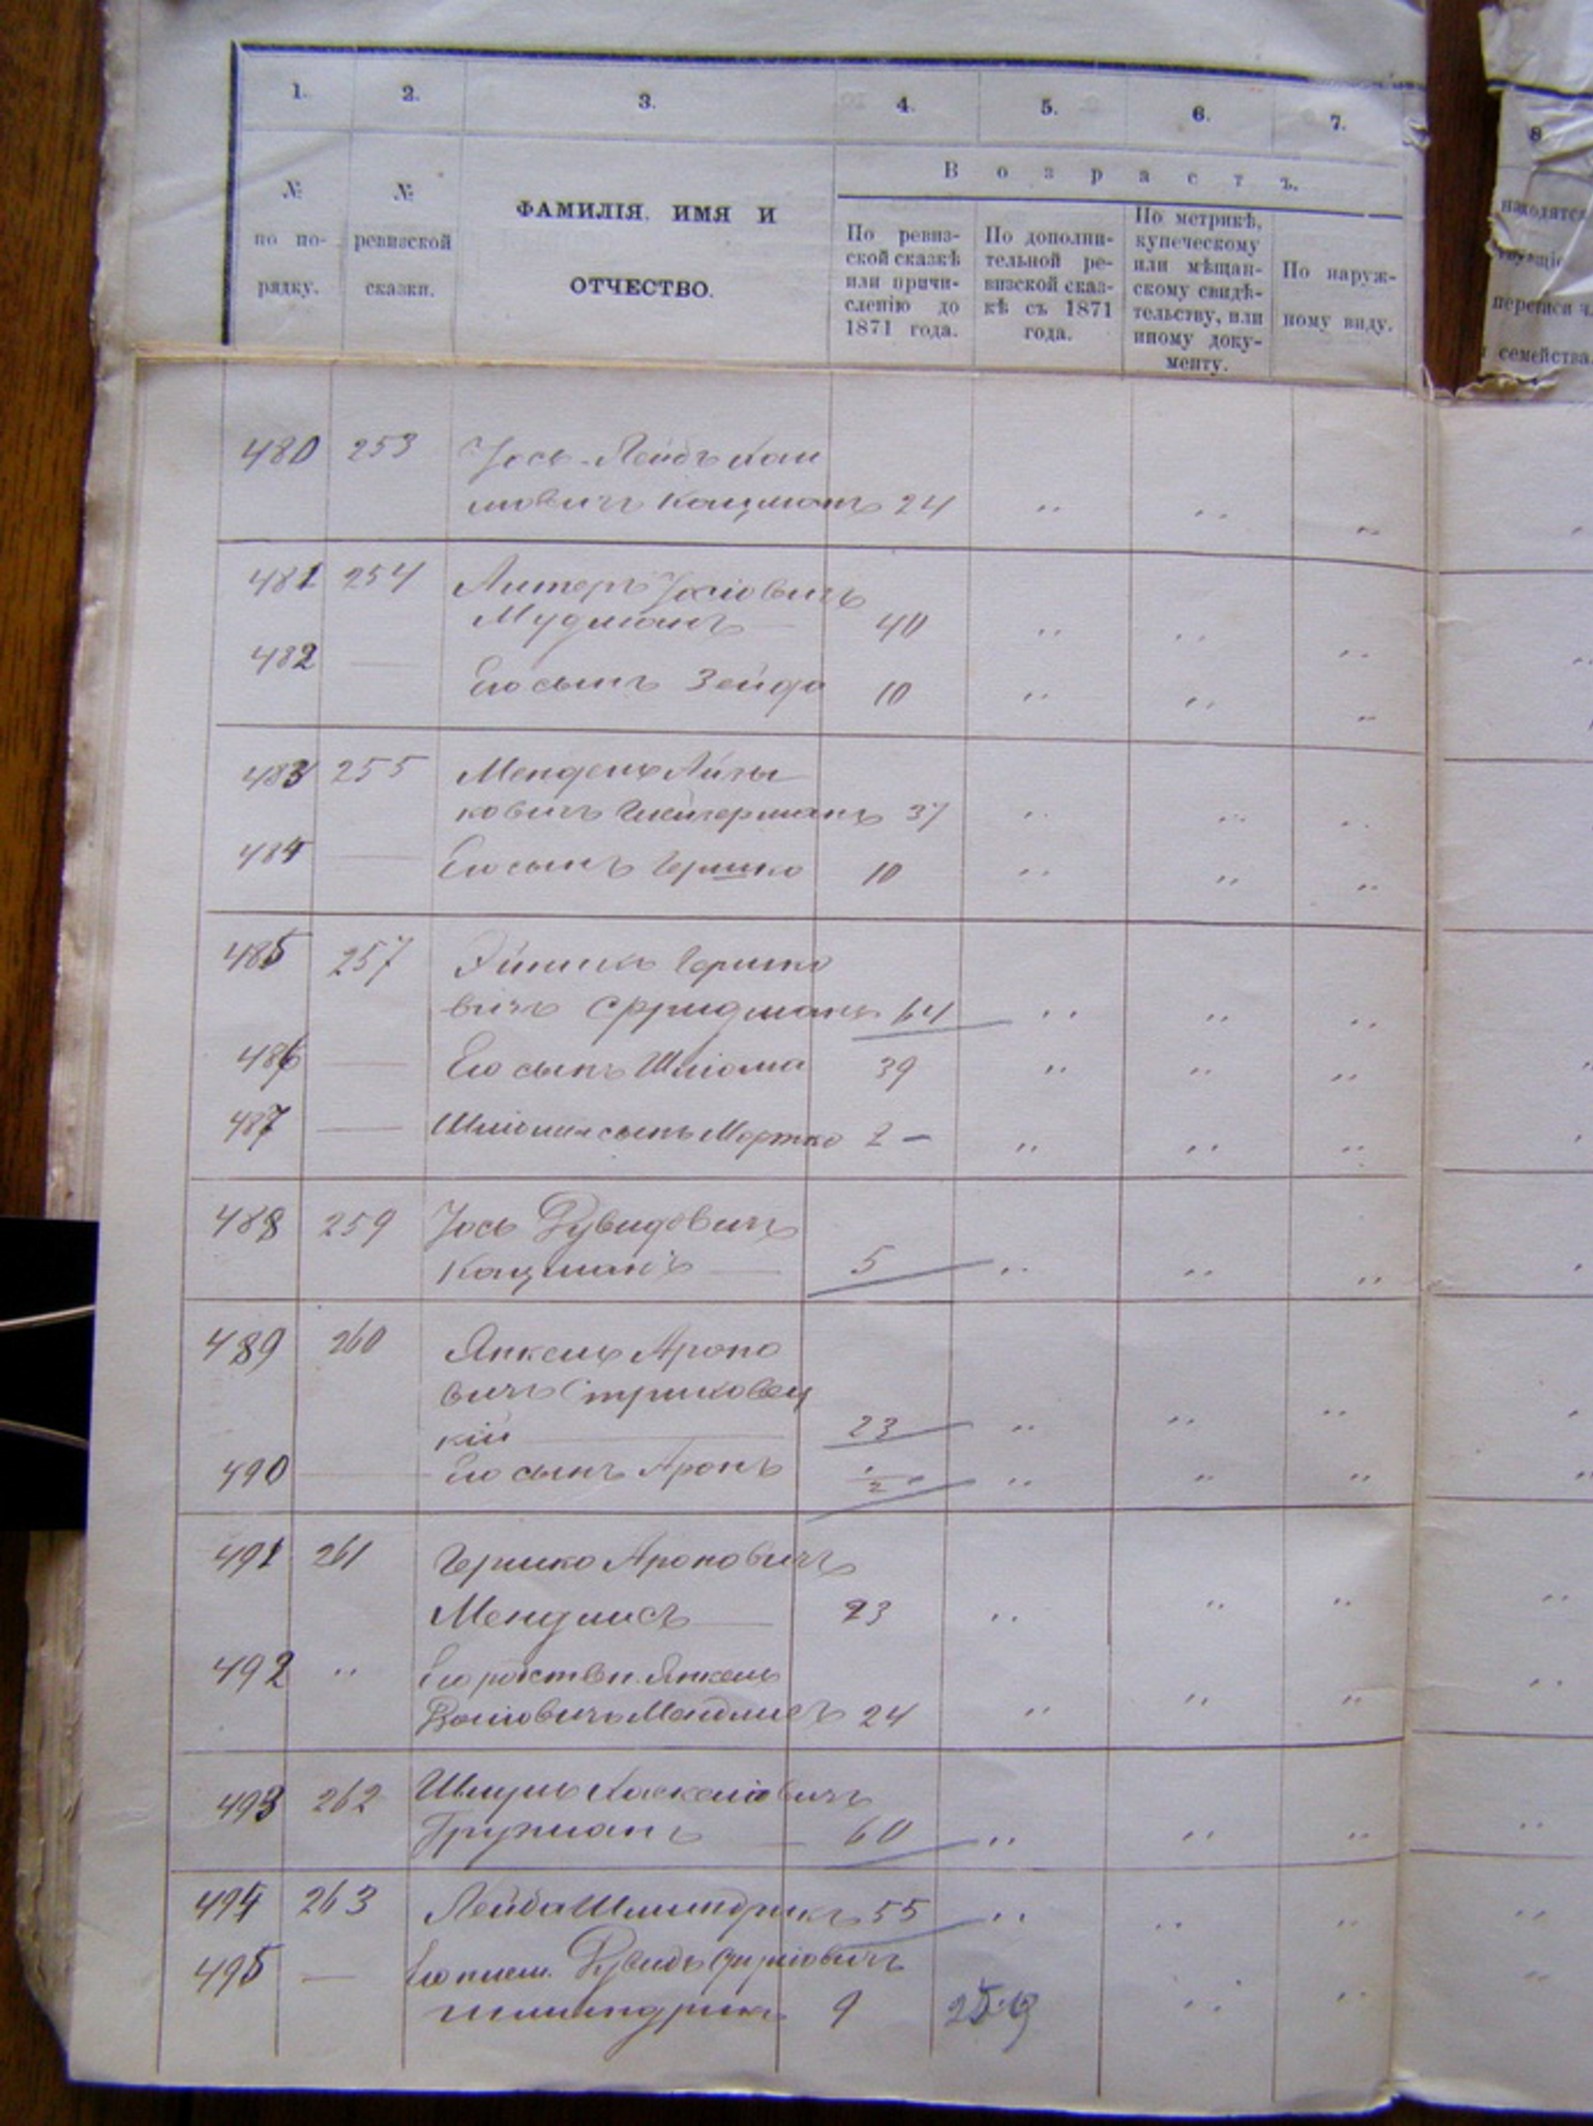 1. 2. 3. 4. 5. 6. 7.
№ по по-рядку.
№ ревизской сказки.
ФАМИЛІЯ, ИМЯ И
ОТЧЕСТВО.
В о з р а с т ъ.
По ревиз-
ской сказкѣ
или причи-
сленію до
1871 года.
По дополни-
тельной ре-
визской сказ-
кѣ съ 1871
года.
По метрикѣ,
купеческому
или мѣщан-
скому свидѣ-
тельству, или
иному доку-
менту.
По наруж-
ному виду.
8
находятся
переписи
семейства
480 253 Іось-Лейбъ Хаи
мовичъ Кацманъ 24 " " "
481 254 Литеръ Іосіовичъ
Мудманъ 40 " " "
482 — Его сынъ Зейда 10 " " "
483 255 Мендель Айзы
ковичъ Шейнерманъ 37 " " "
484 — Его сынъ Гершко 10 " " "
485 257 Гершко
вичъ Фридманъ 64 " " "
486 — Его сынъ Шліома 39 " " "
487 — Шліомы сынъ Мортко 2 - " " "
488 259 Іось Дувидовичъ
Кацманъ 5 " " "
489 260 Янкель Ароно
вичъ Стриковец
кій 23 " " "
490 — Его сынъ Аронъ 1/2 " " "
491 261 Гершко Ароновичъ
Мендлисъ 23 " " "
492 " Его родствен. Янкель
Мендлисъ 24 " " "
493 262 Шмуль Хаскеліовичъ
Грузманъ 60 " " "
494 263 Лейба Шлиндрикъ 55 " " "
495 — Его плем. Дувидъ Сруліовичъ
Шлиндрикъ 9 " "